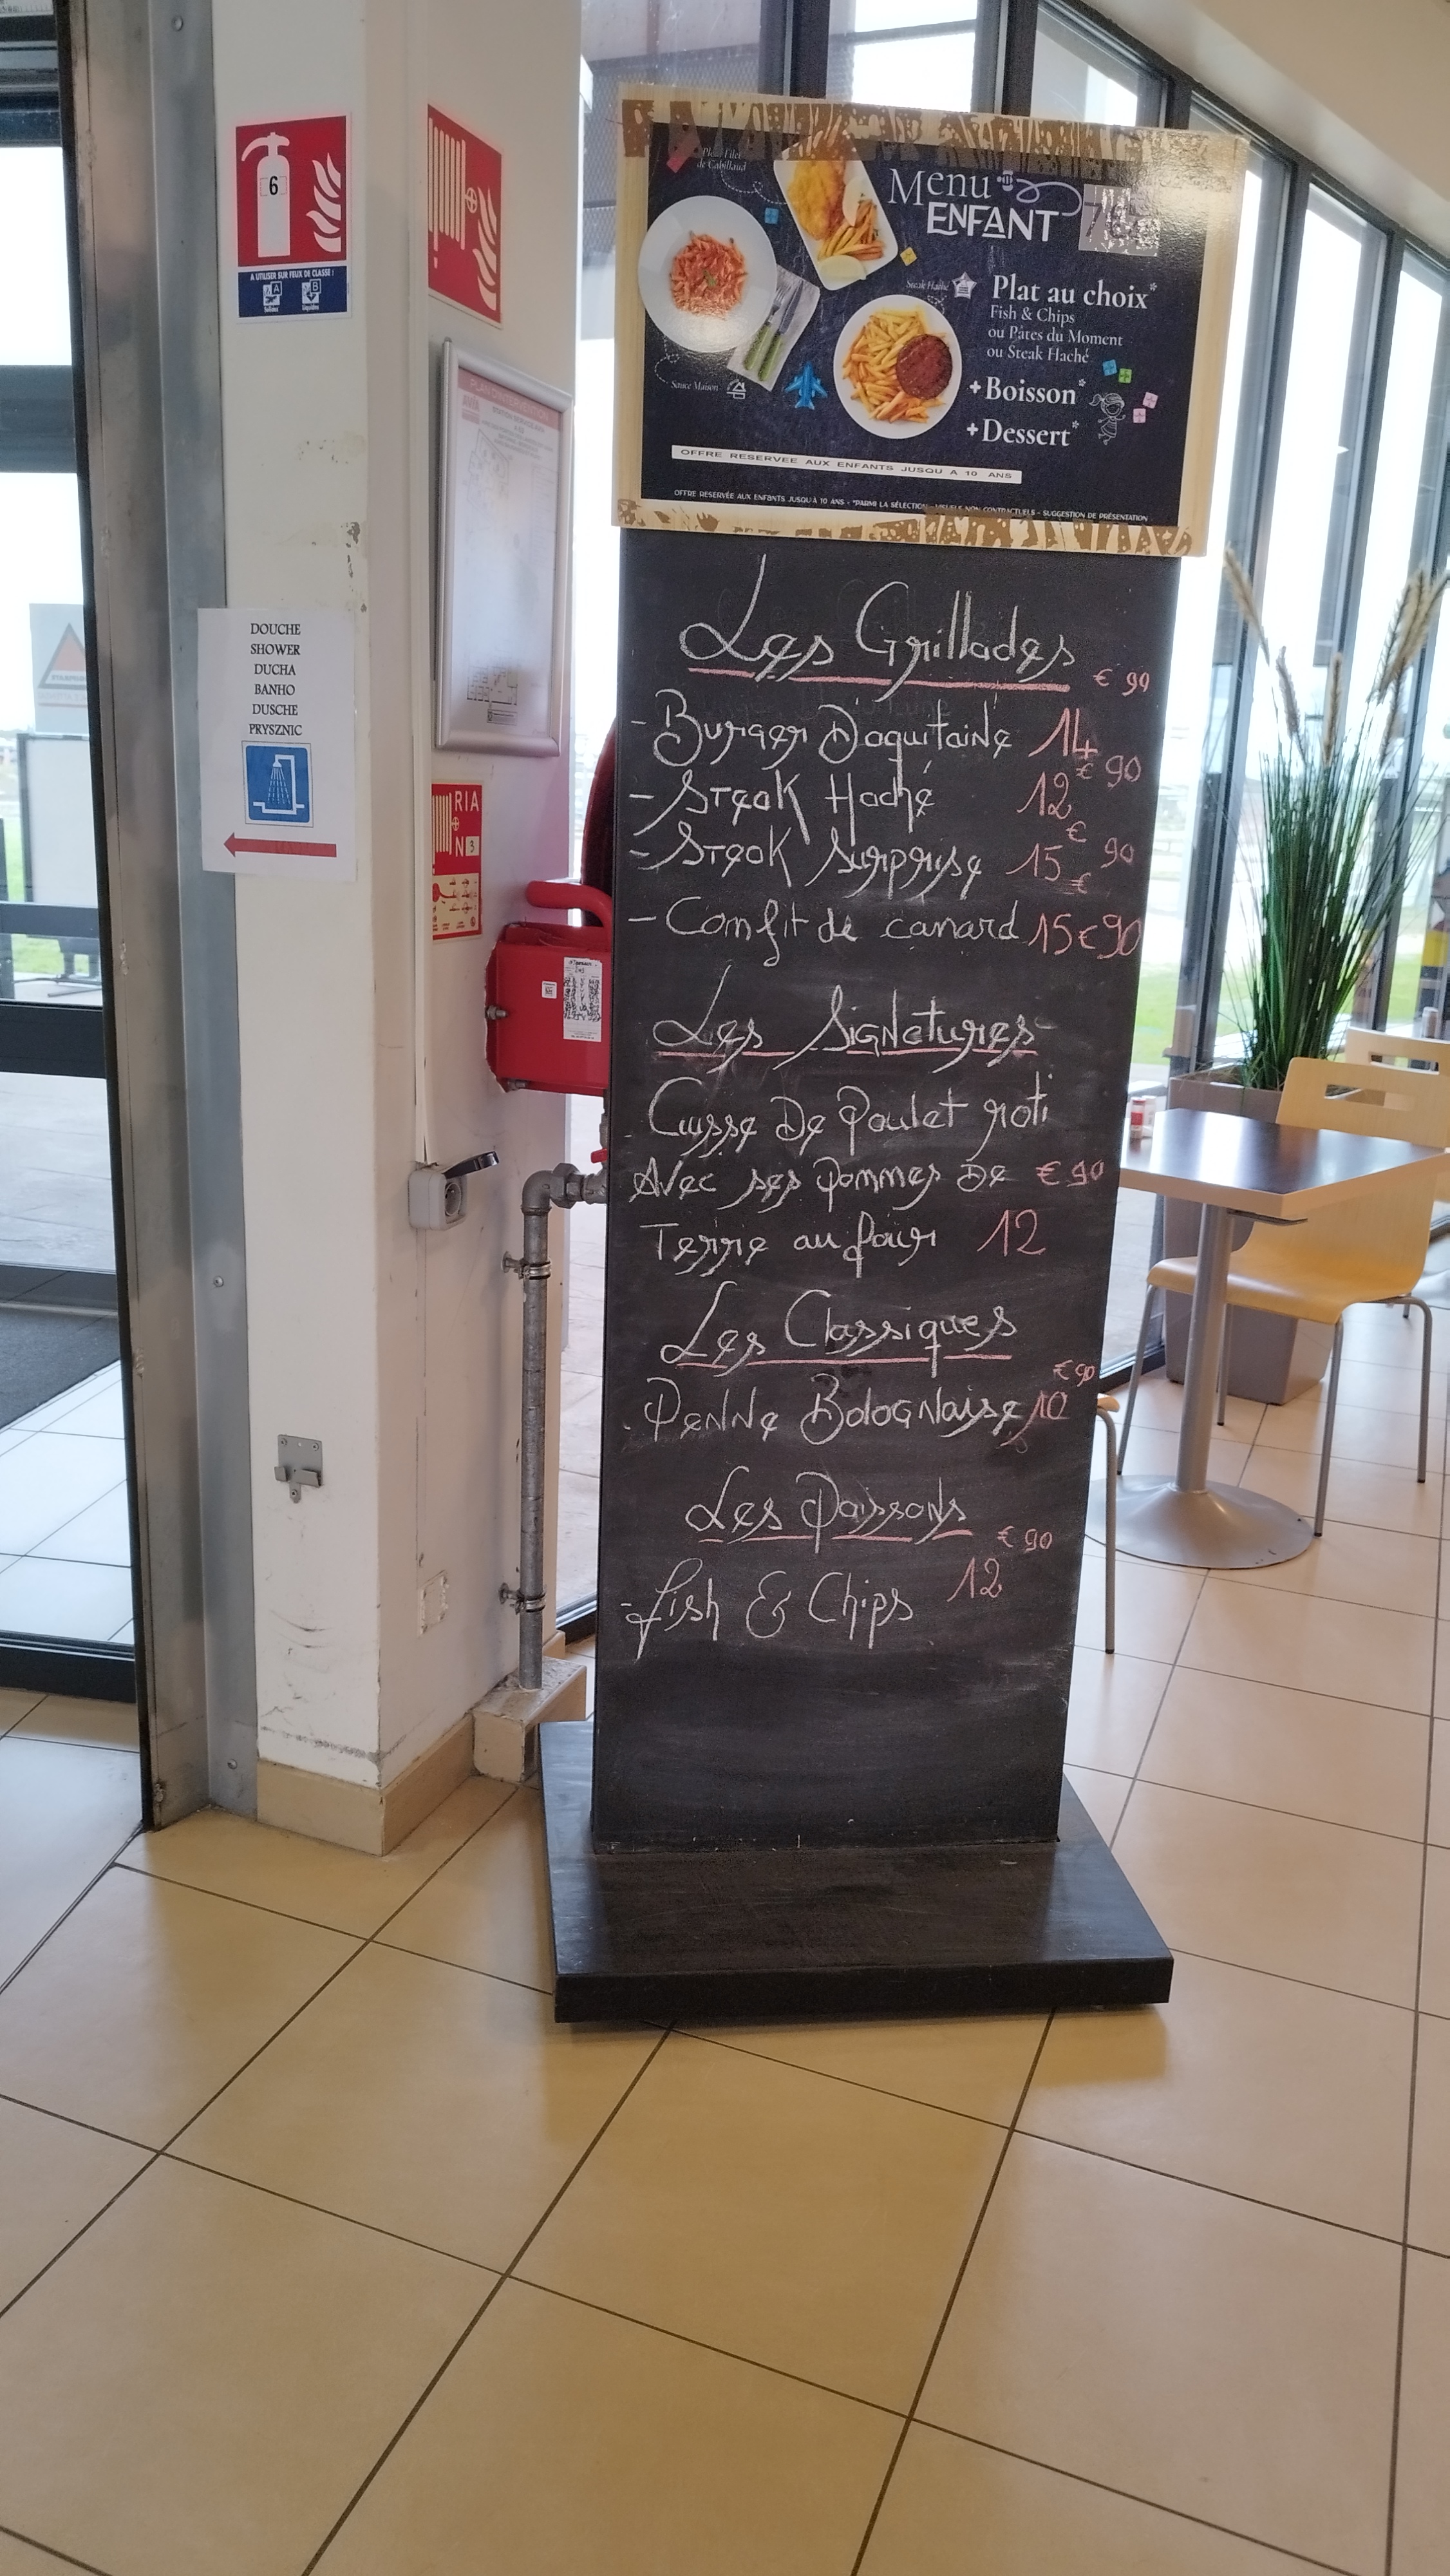 6
A UTILISER SUR FEUX DE CLASSE :
A
B
DOUCHE
SHOWER
DUCHA
BANHO
DUSCHE
PRYSZNIC
RIA
N 3
de Cabillaud
Menu
ENFANT
Steak Haché
Plat au choix*
Fish & Chips
ou Pâtes du Moment
ou Steak Haché
Sauce Maison
+Boisson*
+Dessert*
OFFRE RESERVEE AUX ENFANTS JUSQU A 10 ANS
OFFRE RESERVÉE AUX ENFANTS JUSQU'À 10 ANS - *PARMI LA SÉLECTION - VISUELS NON CONTRACTUELS - SUGGESTION DE PRÉSENTATION
Les Grillades
- Burger D'aquitaine 14 € 90
- Steak Haché 12 € 90
- Steak Surprise 15 € 90
- Confit de canard 15 € 90
Les Signatures
Cuisse De Poulet roti
Avec ses pommes De
Terre au four 12 € 90
Les Classiques
Penne Bolognaise 10 € 90
Les Poissons
- Fish & Chips 12 € 90